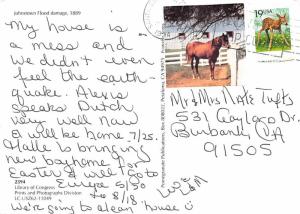 Johnstown Flood damage, 1889
My house is
a mess and
we didn't even
feel the earth-
quake. Alexis
speaks Dutch
very well now
I will be home 7/25.
Halle is bringing
new boy home for
Easter & well go to
Europe 5/30
to 8/18
We're going to clean house
2394
Library of Congress
Prints and Photographs Division
LC-USZ62-11049
19 USA
Mr & Mrs Nate Tufts
531
Burbank, CA
91505